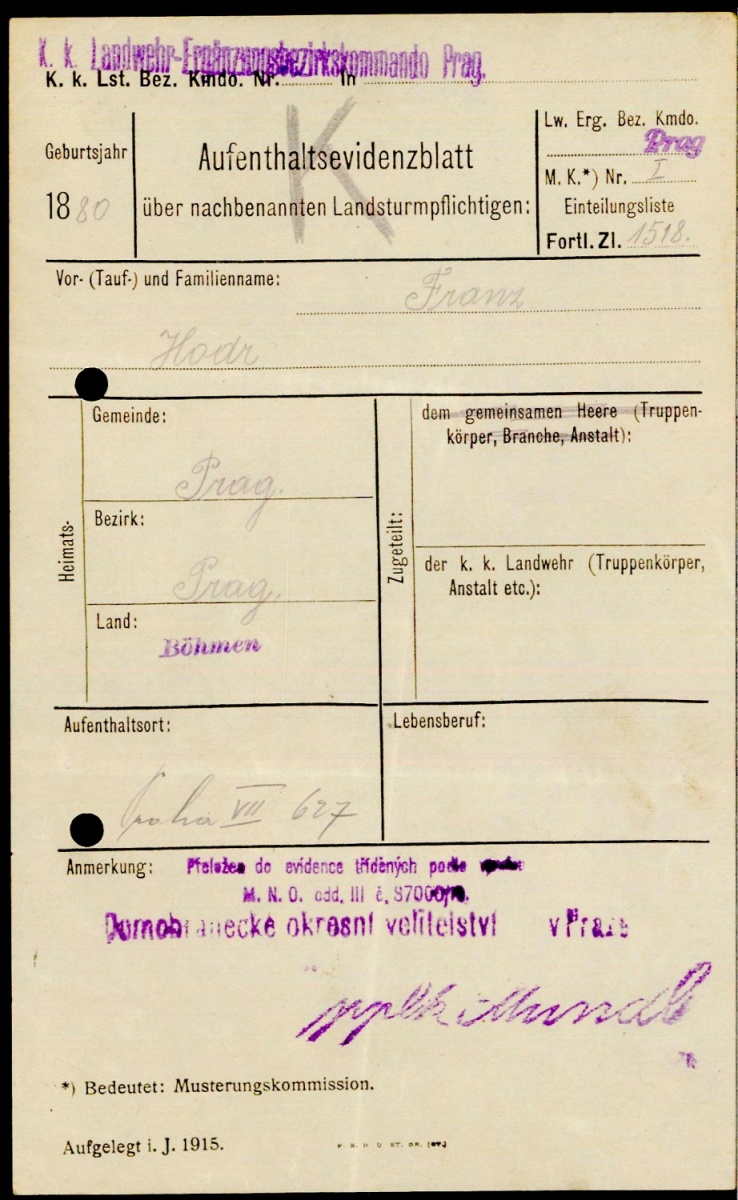 K. k. Landwehr-Ergänzungsbezirkskommando Prag.
K. k. Lst. Bez. Kmdo. Nr. in
Geburtsjahr
1880
K
Aufenthaltsevidenzblatt
über nachbenannten Landsturmpflichtigen:
Lw. Erg. Bez. Kmdo.
Prag
M. K.*) Nr. I
Einteilungsliste
Fortl. Zl. 1518.
Vor- (Tauf-) und Familienname: Franz
Hodr
Heimats-
Gemeinde:
Prag.
Bezirk:
Prag.
Land:
Böhmen
Zugeteilt:
dem gemeinsamen Heere (Truppen-
körper, Branche, Anstalt):
der k. k. Landwehr (Truppenkörper,
Anstalt etc.):
Aufenthaltsort:
Praha VII 627
Lebensberuf:
Anmerkung: Přeložen do evidence tříděných podle
M. N. O. odd. III č. 37000/19.
Domobranecké okresní velitelství v Praze
pplk
*) Bedeutet: Musterungskommission.
Aufgelegt i. J. 1915.